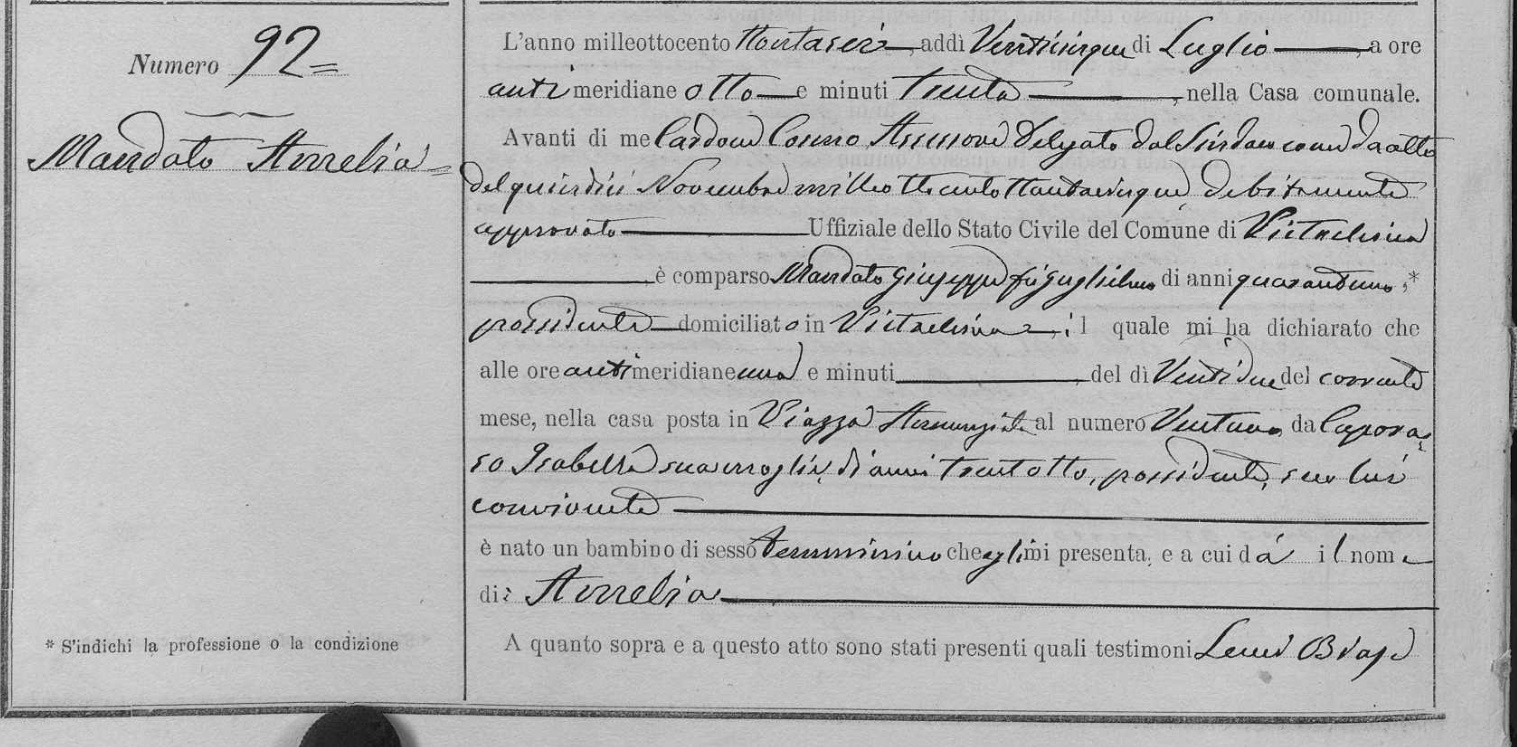 Numero 92=
Mandato Aurelia=
* S'indichi la professione o la condizione
L'anno milleottocento ottantasei addì Venticinque di Luglio, a ore
antimeridiane otto e minuti trenta, nella Casa comunale.
Avanti di me Cardone Cosmo Assessore Delegato dal Sindaco con da atto
del quindici Novembre milleottocentottantacinque, debitamente
approvato Uffiziale dello Stato Civile del Comune di
, è comparso Mandato Giuseppe fu Guglielmo di anni quarantuno,*
possidente domiciliato in, il quale mi ha dichiarato che
alle ore antimeridiane una e minuti, del dì Ventidue del corrente
mese, nella casa posta in Piazza Annunziata al numero Ventuno, da Capora=
so Isabella sua moglie, di anni trentotto, possidente, seco lui
convivente
è nato un bambino di sesso femminino che egli mi presenta, e a cui dà il nome
di: Aurelia
A quanto sopra e a questo atto sono stati presenti quali testimoni Leone Biase